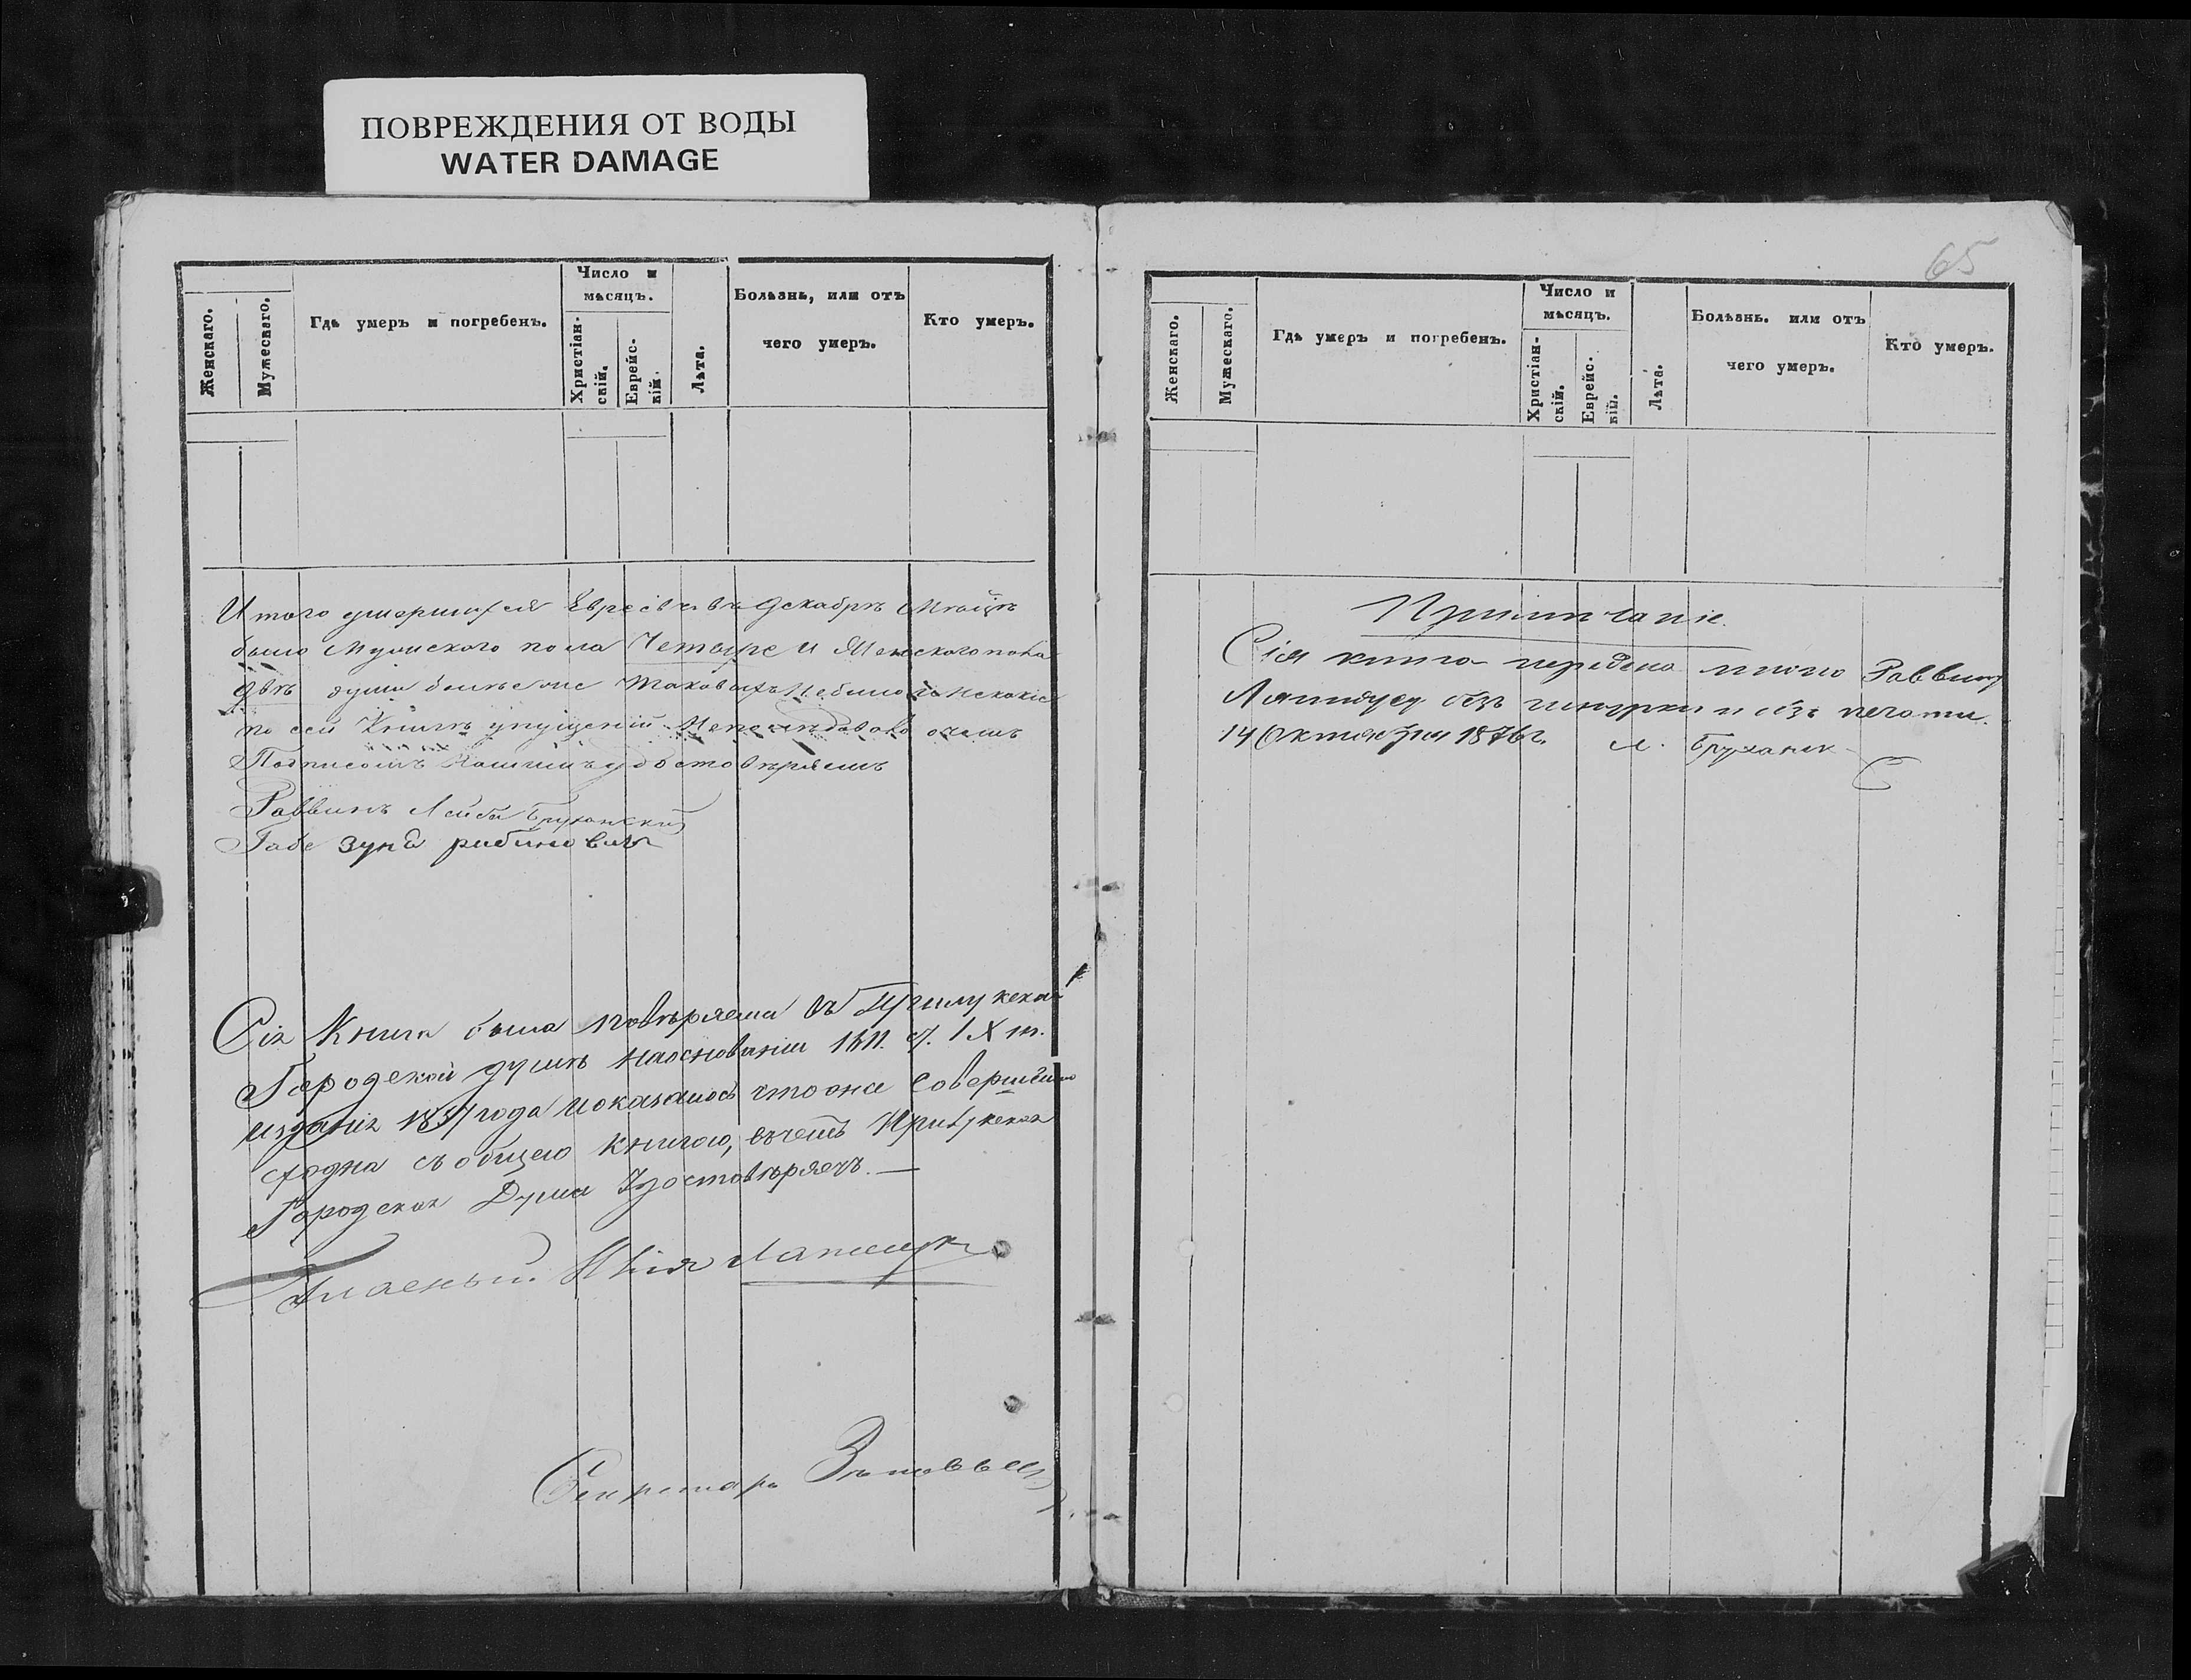 ПОВРЕЖДЕНИЯ ОТ ВОДЫ
WATER DAMAGE
65
Женскаго.
Мужескаго.
Гдѣ умеръ и погребенъ.
Число и мѣсяцъ.
Христіанскій.
Еврейскій.
Лѣта.
Болѣзнь, или отъ чего умеръ.
Кто умеръ.
Итого умершихся Евреевъ въ Декабрѣ Мѣсяцѣ
было Мужскаго пола Четыре и Женскаго пола
Двѣ души болѣе сие таковыхъ небыло и некакіе
по сей Книгѣ упущеній
Подписомъ Нашимъ удостовѣряемъ
Раввинъ Лейба Бруханскій
Габе Зунд рабиновичъ
Сія Книга была повѣряема въ Прилукской
Городской думѣ наоснованіи IX т.
изданія 1857 года и оказалось что она Совершенно
сходна съ общею книгою, въ чемъ Прилукская
Городская Дума Удостовѣряетъ. —
Гласный
Секретарь
Женскаго.
Мужескаго.
Гдѣ умеръ и погребенъ.
Число и мѣсяцъ.
Христіанскій.
Еврейскій.
Лѣта.
Болѣзнь. или отъ чего умеръ.
Кто умеръ.
Примѣчаніе.
Сія книга передана мною Раввину
безъ шнурка и безъ печати.
14 Октября 1876 г. Л. Бруханск